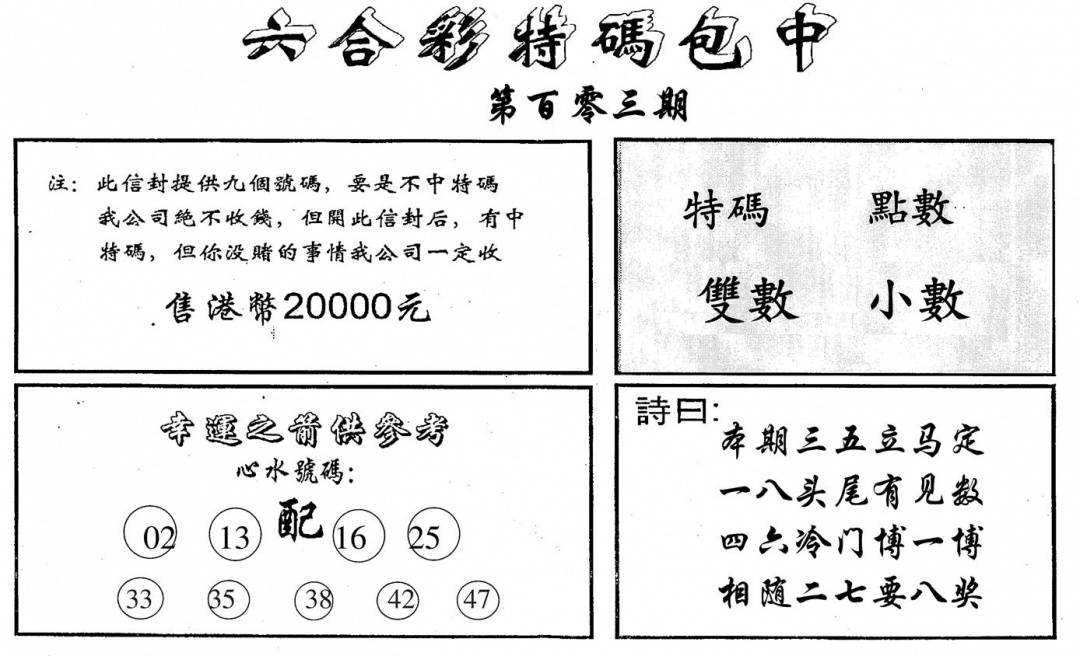 六合彩特碼包中
第百零三期
注：此信封提供九個號碼，要是不中特碼
我公司絕不收錢，但開此信封后，有中
特碼，但你没賭的事情我公司一定收
售港幣20000元
特碼 點數
雙數 小數
幸運之箭供參考
心水號碼：
02 13 配 16 25
33 35 38 42 47
詩曰：
本期三五立马定
一八头尾有见数
四六冷门博一博
相随二七要八奖